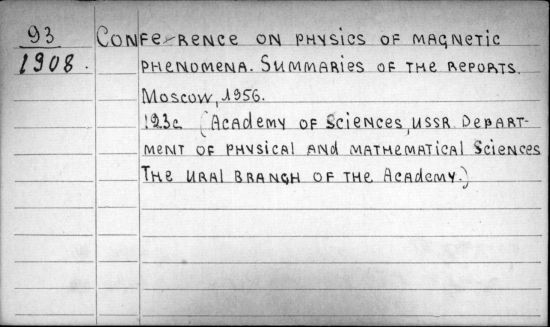 93
1908.
Conference on physics of magnetic
phenomena. Summaries of the reports.
Moscow, 1956.
123c (Academy of Sciences, USSR Depart-
ment of physical and mathematical Sciences
The Ural Branch of the Academy.)